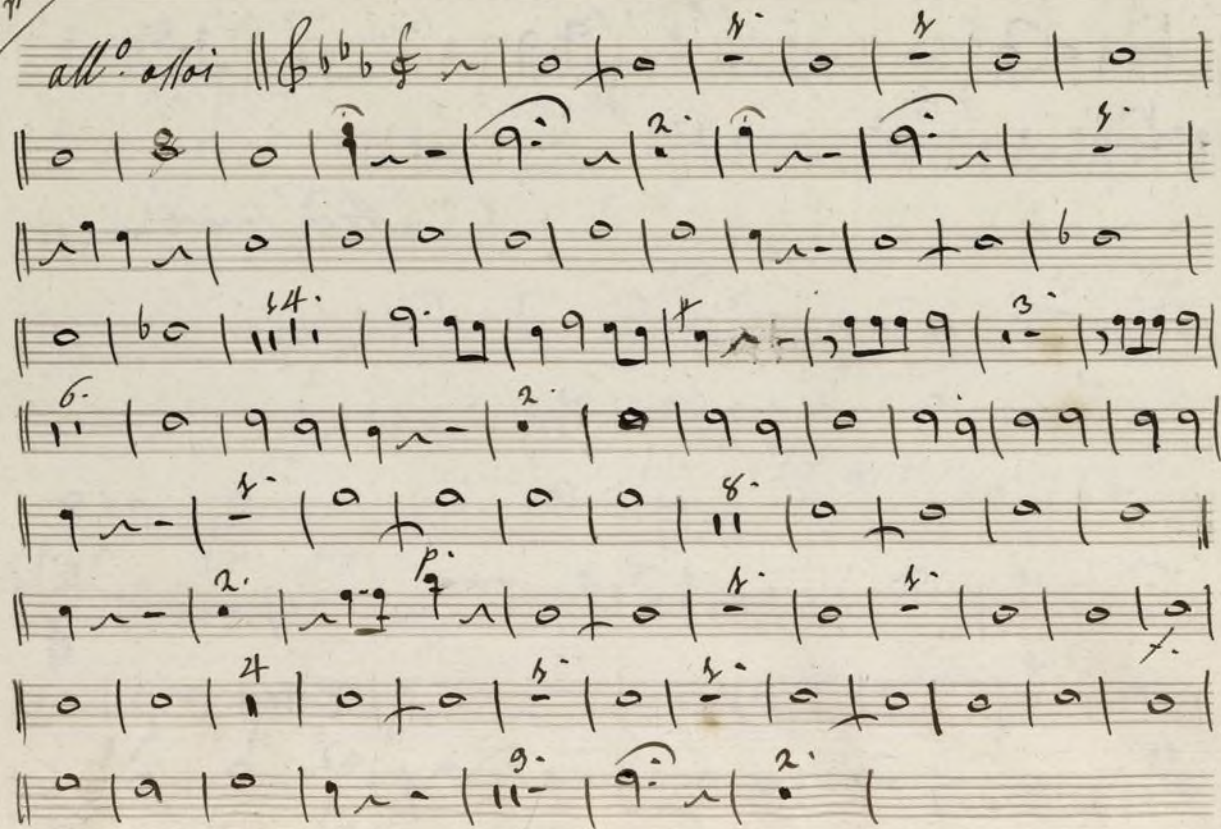 all.º assai 1. 1.
2. 1.
14. 3.
6. 2.
1. 8.
2. p. 1. 1. f.
4 1. 1.
9. 2.